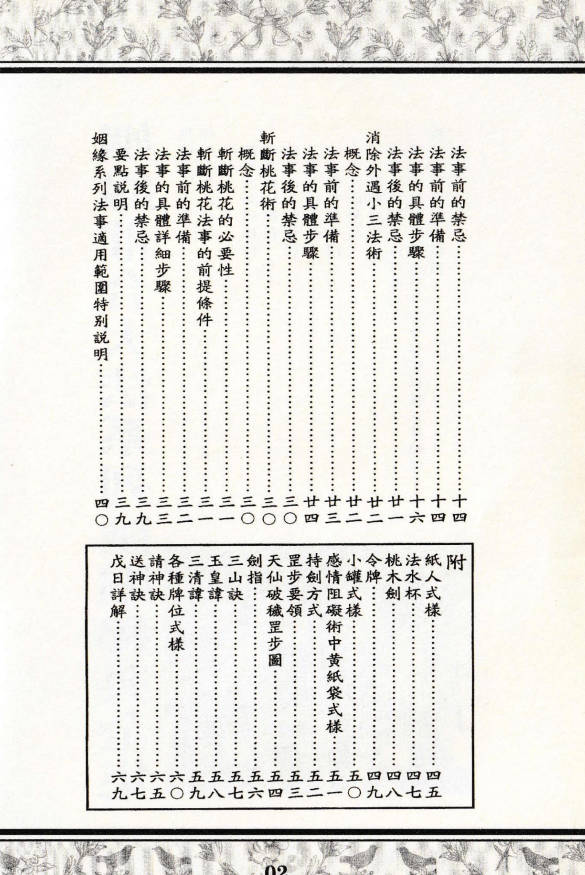 法事前的禁忌……………………十四
法事前的準備……………………十四
法事的具體步驟……………………十六
法事後的禁忌……………………廿一
消除外遇小三法術……………………廿二
概念……………………廿二
法事前的準備……………………廿三
法事的具體步驟……………………廿四
法事後的禁忌……………………三〇
斬斷桃花術……………………三〇
概念……………………三〇
斬斷桃花的必要性……………………三一
斬斷桃花法事的前提條件……………………三一
法事前的準備……………………三二
法事的具體詳細步驟……………………三三
法事後的禁忌……………………三九
要點説明……………………三九
姻緣系列法事適用範圍特别説明……………………四〇
附
紙人式樣……………………四五
法水杯……………………四七
桃木劍……………………四八
令牌……………………四九
小罐式樣……………………五〇
感情阻礙術中黄紙袋式樣……五一
持劍方式……………………五二
罡步要領……………………五三
天仙破穢罡步圖……………………五四
劍指……………………五六
三山訣……………………五七
玉皇諱……………………五八
三清諱……………………五九
各種牌位式樣……………………六〇
請神訣……………………六五
送神訣……………………六七
戊日詳解……………………六九
02